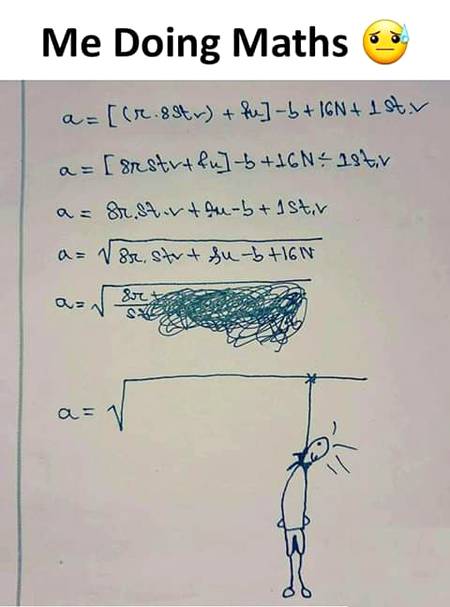 Me Doing Maths 😓
a = [(r.8st.v) + fu] - b + 16N + 1st.v
a = [8rstv + fu] - b + 16N ÷ 1st.v
a = 8r.st.v + fu - b + 1st.v
a = √8r.stv + fu - b + 16N
a = √8r
a = √